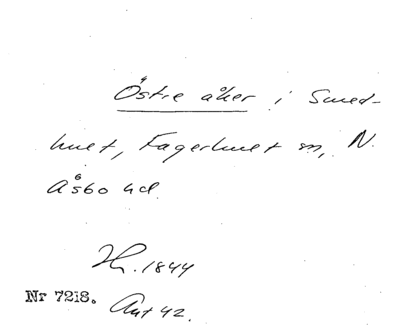 Östre åker i Smed-
hult, Fagerhult sn, N.
Åsbo hd.
Hr. 1844
Nr 7218. Ant 42.